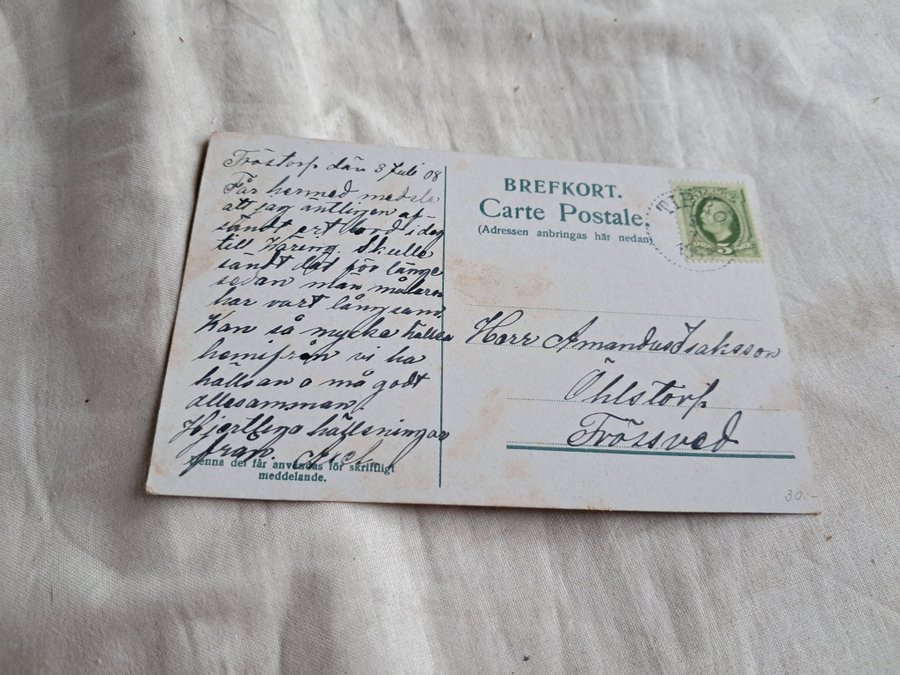 Tröstorp dän 3 Juli 08
Får hermed medela
att jag äntligen af-
sändt ert bord i dag
till Wäring. Skulle
sändt det för länge
sedan män målaren
har vart långsam.
Kan så mycke hällsa
hemifrån vi ha
hällsan o må godt
allesamman.
Hjertliga hällsningar
från.
Denna del får användas för skriftligt
meddelande.
BREFKORT.
Carte Postale.
(Adressen anbringas här nedan)
5
Herr Amandus Isaksson
Öhlstorp
Frössved
30:-